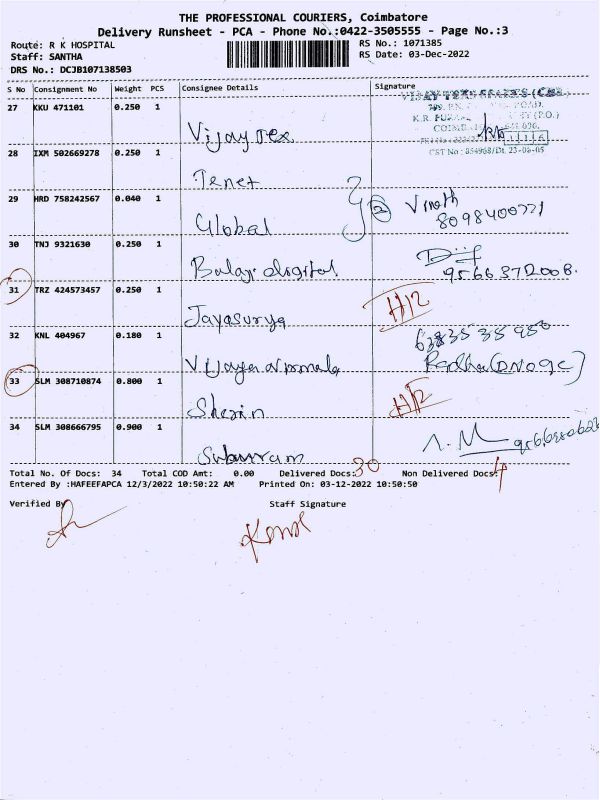 THE PROFESSIONAL COURIERS, Coimbatore
Delivery Runsheet - PCA - Phone No.:0422-3505555 - Page No.:3
Route: R K HOSPITAL RS No.: 1071385
Staff: SANTHA RS Date: 03-Dec-2022
DRS No.: DCJB107138503
S No Consignment No Weight PCS Consignee Details Signature
27 KKU 471101 0.250 1
Vijay Tex
28 IXM 502669278 0.250 1
Tenet
29 HRD 758242567 0.040 1
Global Vinoth
8098400771
30 TNJ 9321630 0.250 1
Balaji digital
9566372008.
31 TRZ 424573457 0.250 1
Jayasurya
32 KNL 404967 0.180 1
33 SLM 308710874 0.800 1
Sherin
34 SLM 308666795 0.900 1
Total No. Of Docs: 34 Total COD Amt: 0.00 Delivered Docs: 30 Non Delivered Docs: 4
Entered By :HAFEEFAPCA 12/3/2022 10:50:22 AM Printed On: 03-12-2022 10:50:50
Verified By Staff Signature